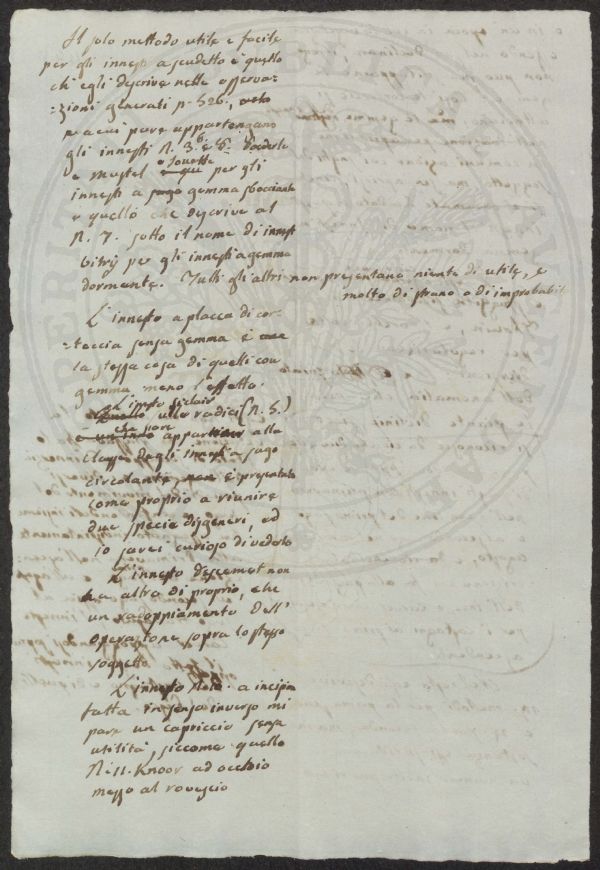 Il solo mettodo utile e facile
per gli innesti a scudetto è quello
ch' egli descrive nelle osserva-
-zioni generali p. 526.,
a cui pure appartengano
gli innesti N. 3. e 6.
e Mustel o Jouette per gli
innesti a gemma sbocciante
e quello che descrive al
N. 7. sotto il nome di innest
Vitry per gli innesti a gemma
dormente. Tutti gli altri non presentano niente di utile, e
molto di strano o di improbabil
L' innesto a placca di cor-
-teccia senza gemma è
la stessa cosa di quelli con
gemma meno l'effetto.
L' innesto
sulle radici (N. 5.)
che pare appartiene alla
classe degli innesti a sugo
circolante, è presentato
come proprio a riunire
due specie disgeneri, ed
io sarei curioso di vederlo
L' innesto Descemet non
ha altro di proprio, che
un raddoppiamento dell'
operazione sopra lo stesso
soggetto.
L' innesto a incisione
fatta in senso inverso mi
pare un capriccio senza
utilità, siccome quello
Knoor ad occhio
messo al rovescio